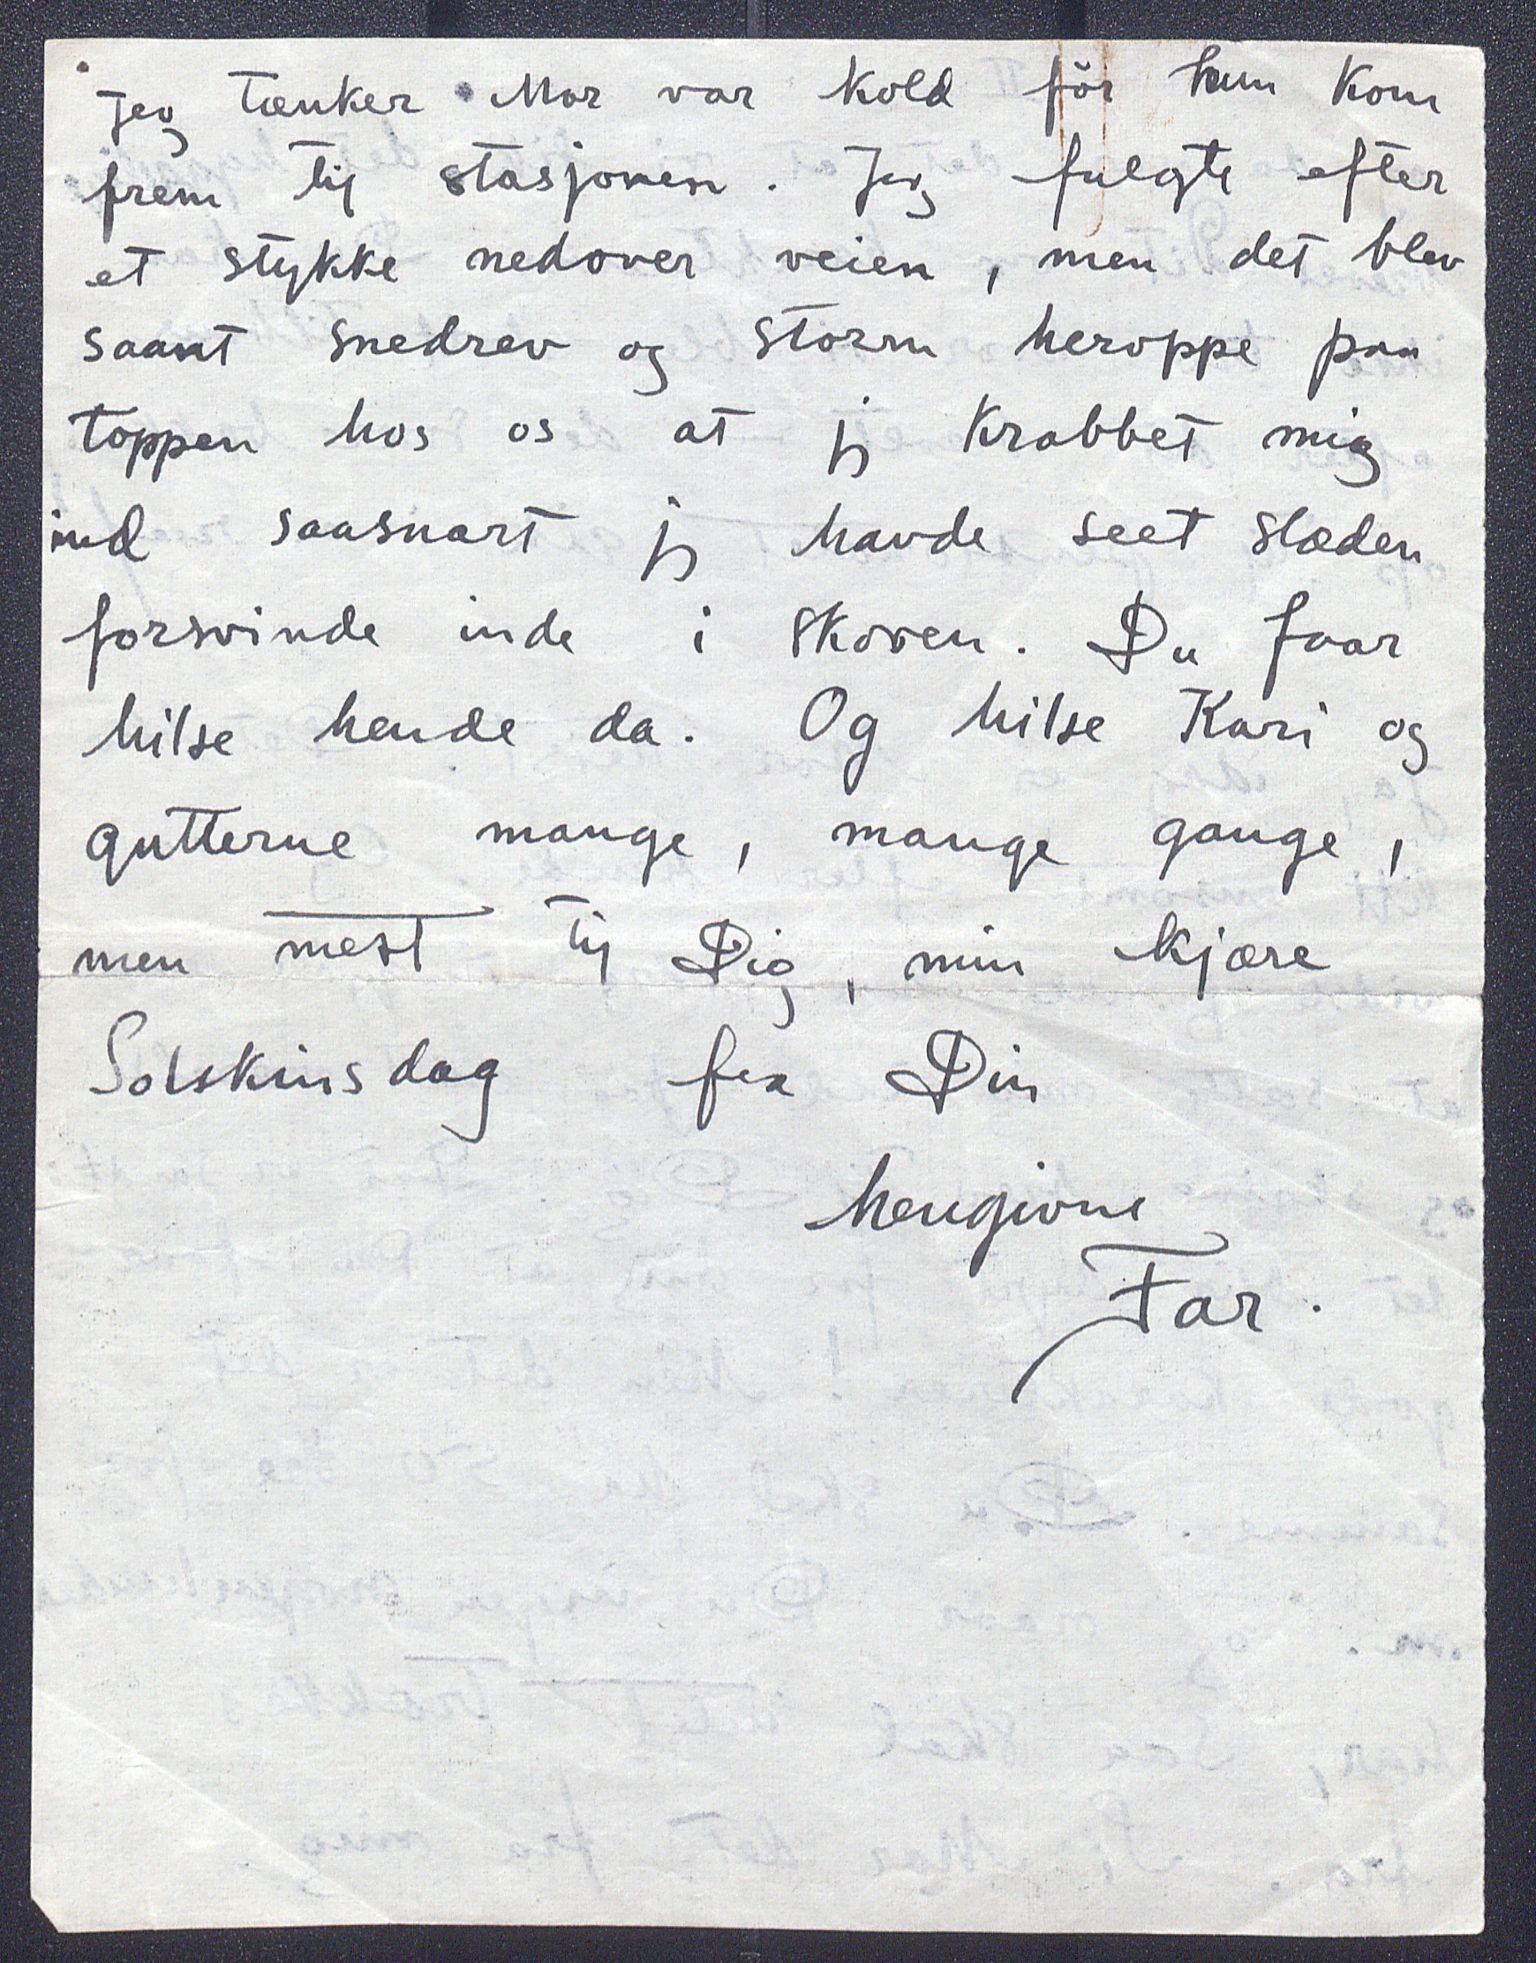 Jeg tænker Mor var kold før hun kom
frem til stasjonen. Jeg fulgte efter
et stykke nedover veien, men det blev
saant snedrev og storm heroppe paa
toppen hos os at jeg krabbet mig
ind saasnart jeg havde seet slæden
forsvinde inde i skoven. Du faar
hilse hende da. Og hilse Kari og
gutterne mange, mange gange,
men mest til Dig, min kjære
Solskinsdag fra Din
hengivne
Far.